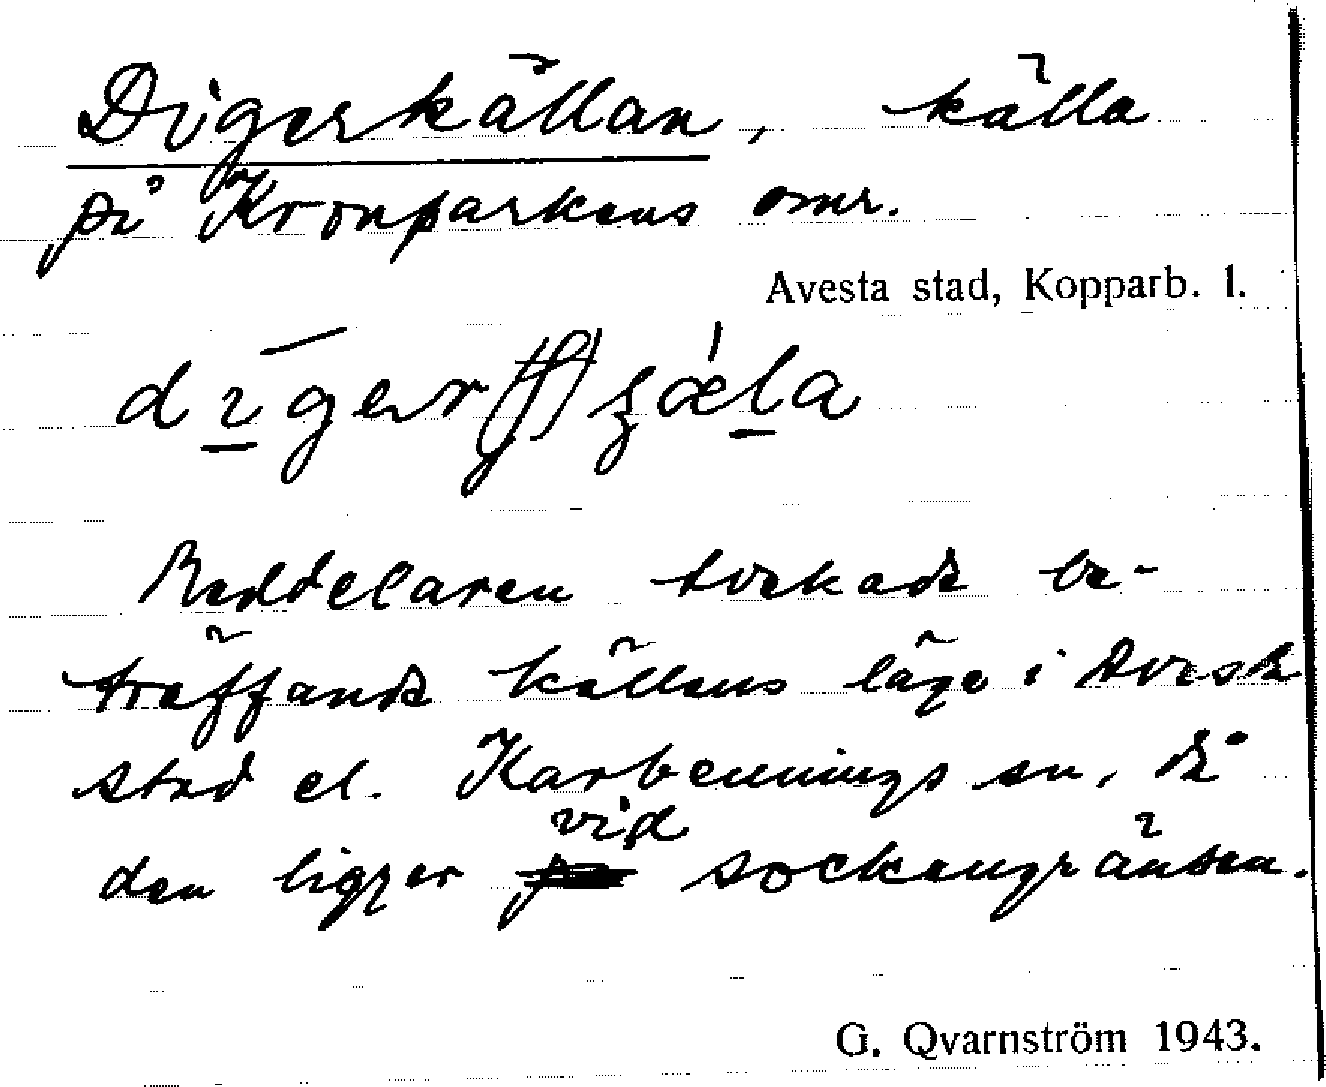 Digerkällan, källa
på Kronparkens omr.
Avesta stad, Kopparb. l.
Meddelaren tvekade be-
träffande källans läge i Avesta
stad el. Karbennings sn, då
den ligger vid sockengränsen.
G. Qvarnström 1943.